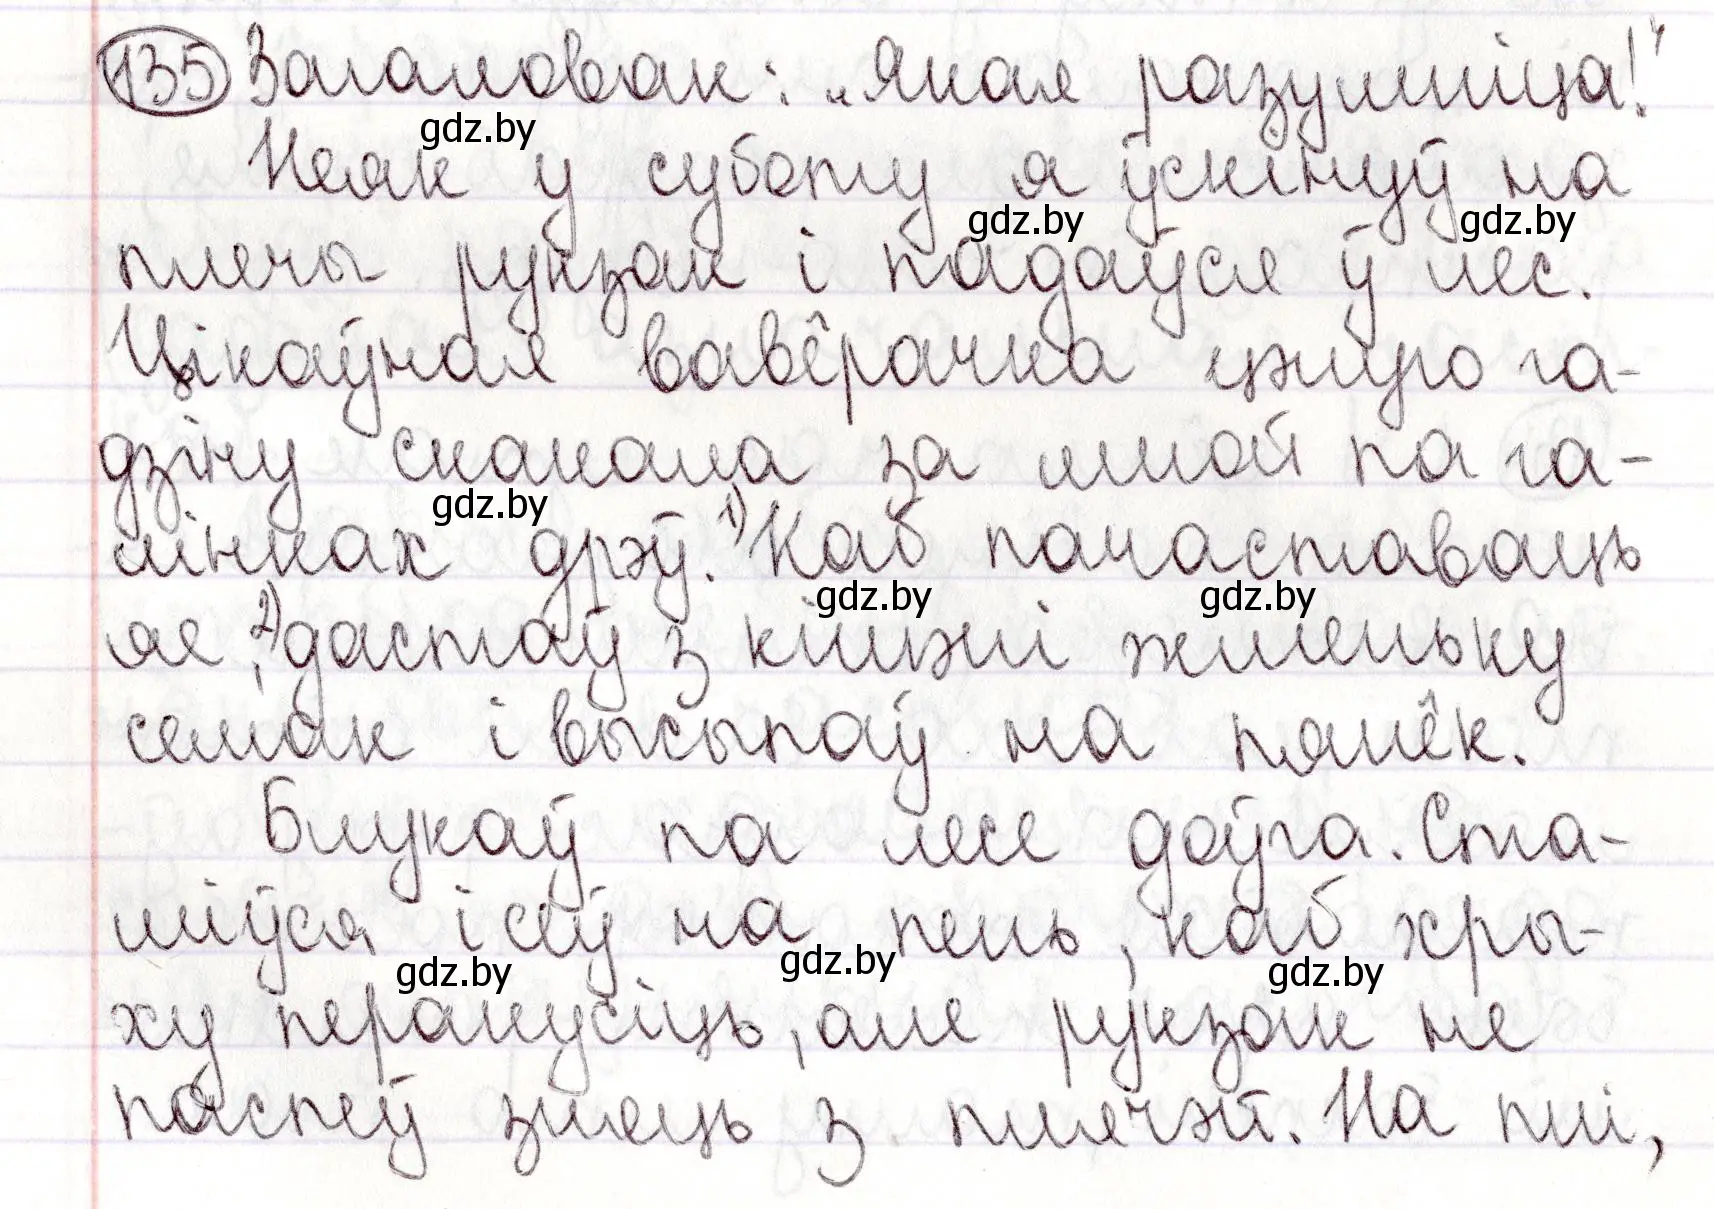 135 Загаловак: „Якая разумніца!"
Неяк у суботу я ўскінуў на
плечы рукзак і падаўся ў лес.
Цікаўная вавёрачка цэлую га-
дзіну скакала за мной па га-
лінках дрэў. 1) Каб пачаставаць
яе, 2) дастаў з кішэні жменьку
семак і высыпаў на пянёк.
Блукаў па лесе доўга. Ста-
міўся і сеў на пень, каб кры-
ху перакусіць, але рукзак не
паспеў зняць з плячэй. На пні,
gdz.by
gdz.by
gdz.by
gdz.by
gdz.by
gdz.by
gdz.by
gdz.by
gdz.by